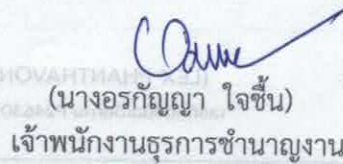 (นางอรกัญญา ใจชื้น)
เจ้าพนักงานธุรการชำนาญงาน